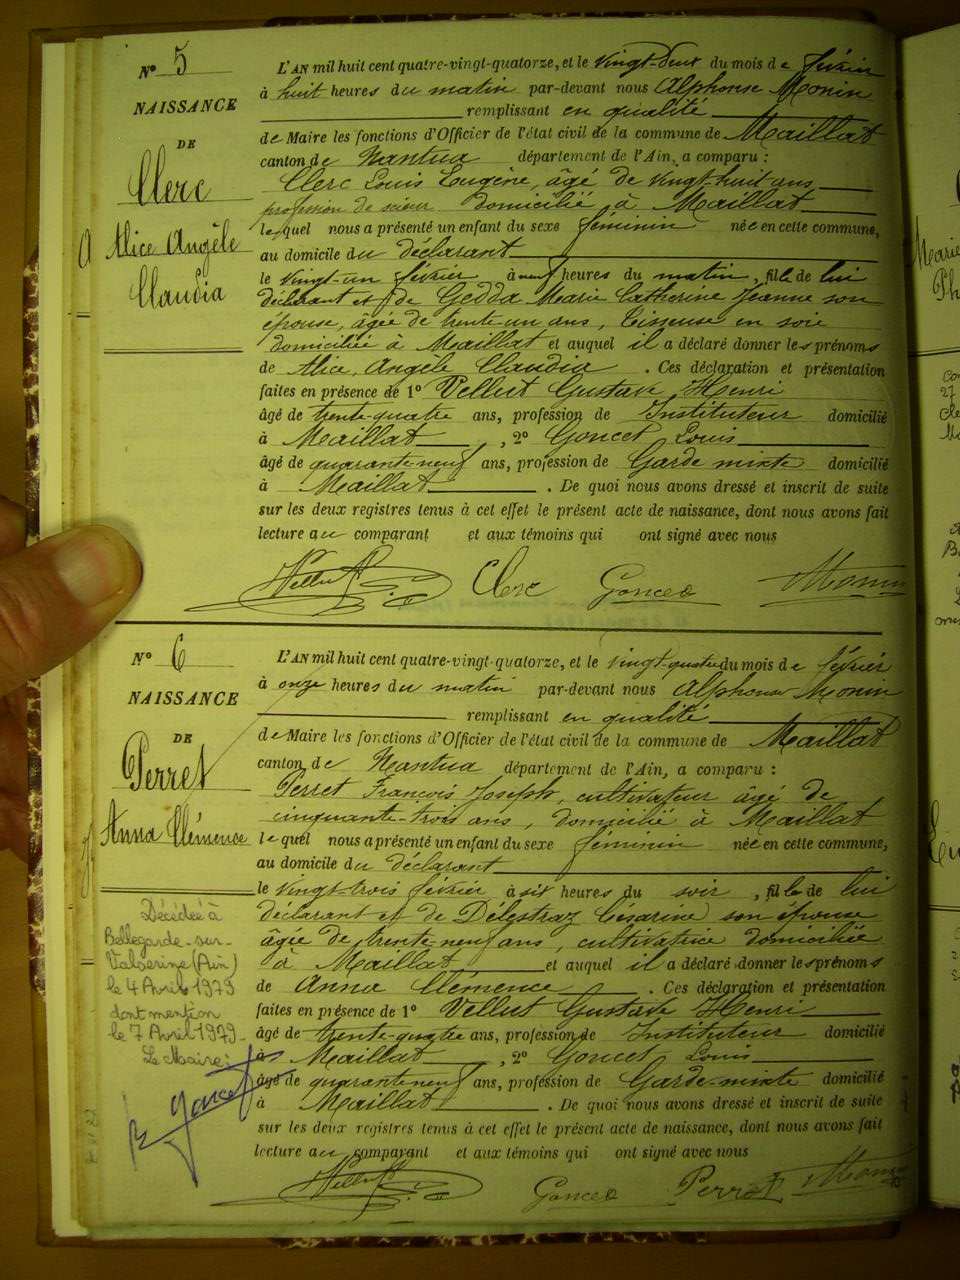 N° 5
NAISSANCE
DE
Clerc
Alice Angèle
Claudia
L'AN mil huit cent quatre-vingt-quatorze, et le vingt-deux du mois de février
à huit heures du matin par-devant nous Alphonse Monin
remplissant en qualité
de Maire les fonctions d'Officier de l'état civil de la commune de Maillat
canton de Nantua département de l'Ain, a comparu :
Clerc Louis Eugène, âgé de vingt-huit ans
profession de scieur domicilié à Maillat
lequel nous a présenté un enfant du sexe féminin née en cette commune,
au domicile du déclarant
le vingt-un février à neuf heures du matin, fille de lui
déclarant et de Gedda Marie Catherine Jeanne son
épouse, âgée de trente-un ans, Tisseuse en soie
domiciliée à Maillat et auquel il a déclaré donner les prénoms
de Alice, Angèle Claudia . Ces déclaration et présentation
faites en présence de 1° Vellut Gustave Henri
âgé de trente-quatre ans, profession de Instituteur domicilié
à Maillat , 2° Goncet Louis
âgé de quarante-neuf ans, profession de Garde mixte domicilié
à Maillat . De quoi nous avons dressé et inscrit de suite
sur les deux registres tenus à cet effet le présent acte de naissance, dont nous avons fait
lecture au comparant et aux témoins qui ont signé avec nous
Vellut Clerc Goncet Monin
N° 6
NAISSANCE
DE
Perret
Anna Clémence
L'AN mil huit cent quatre-vingt-quatorze, et le vingt-quatre du mois de février
à onze heures du matin par-devant nous Alphonse Monin
remplissant en qualité
de Maire les fonctions d'Officier de l'état civil de la commune de Maillat
canton de Nantua département de l'Ain, a comparu :
Perret François Joseph, cultivateur âgé de
cinquante-trois ans, domicilié à Maillat
lequel nous a présenté un enfant du sexe féminin née en cette commune,
au domicile du déclarant
le vingt-trois février à six heures du soir, fille de lui
déclarant et de Délestraz Césarine son épouse
âgée de trente-neuf ans, cultivatrice domiciliée
à Maillat et auquel il a déclaré donner les prénoms
de Anna Clémence . Ces déclaration et présentation
faites en présence de 1° Vellut Gustave Henri
âgé de trente-quatre ans, profession de Instituteur domicilié
à Maillat , 2° Goncet Louis
âgé de quarante-neuf ans, profession de Garde-mixte domicilié
à Maillat . De quoi nous avons dressé et inscrit de suite
sur les deux registres tenus à cet effet le présent acte de naissance, dont nous avons fait
lecture au comparant et aux témoins qui ont signé avec nous
Vellut Goncet Perret Monin
Décédée à
Bellegarde-sur-
Valserine (Ain)
le 4 Avril 1979
dont mention
le 7 Avril 1979
Le Maire :